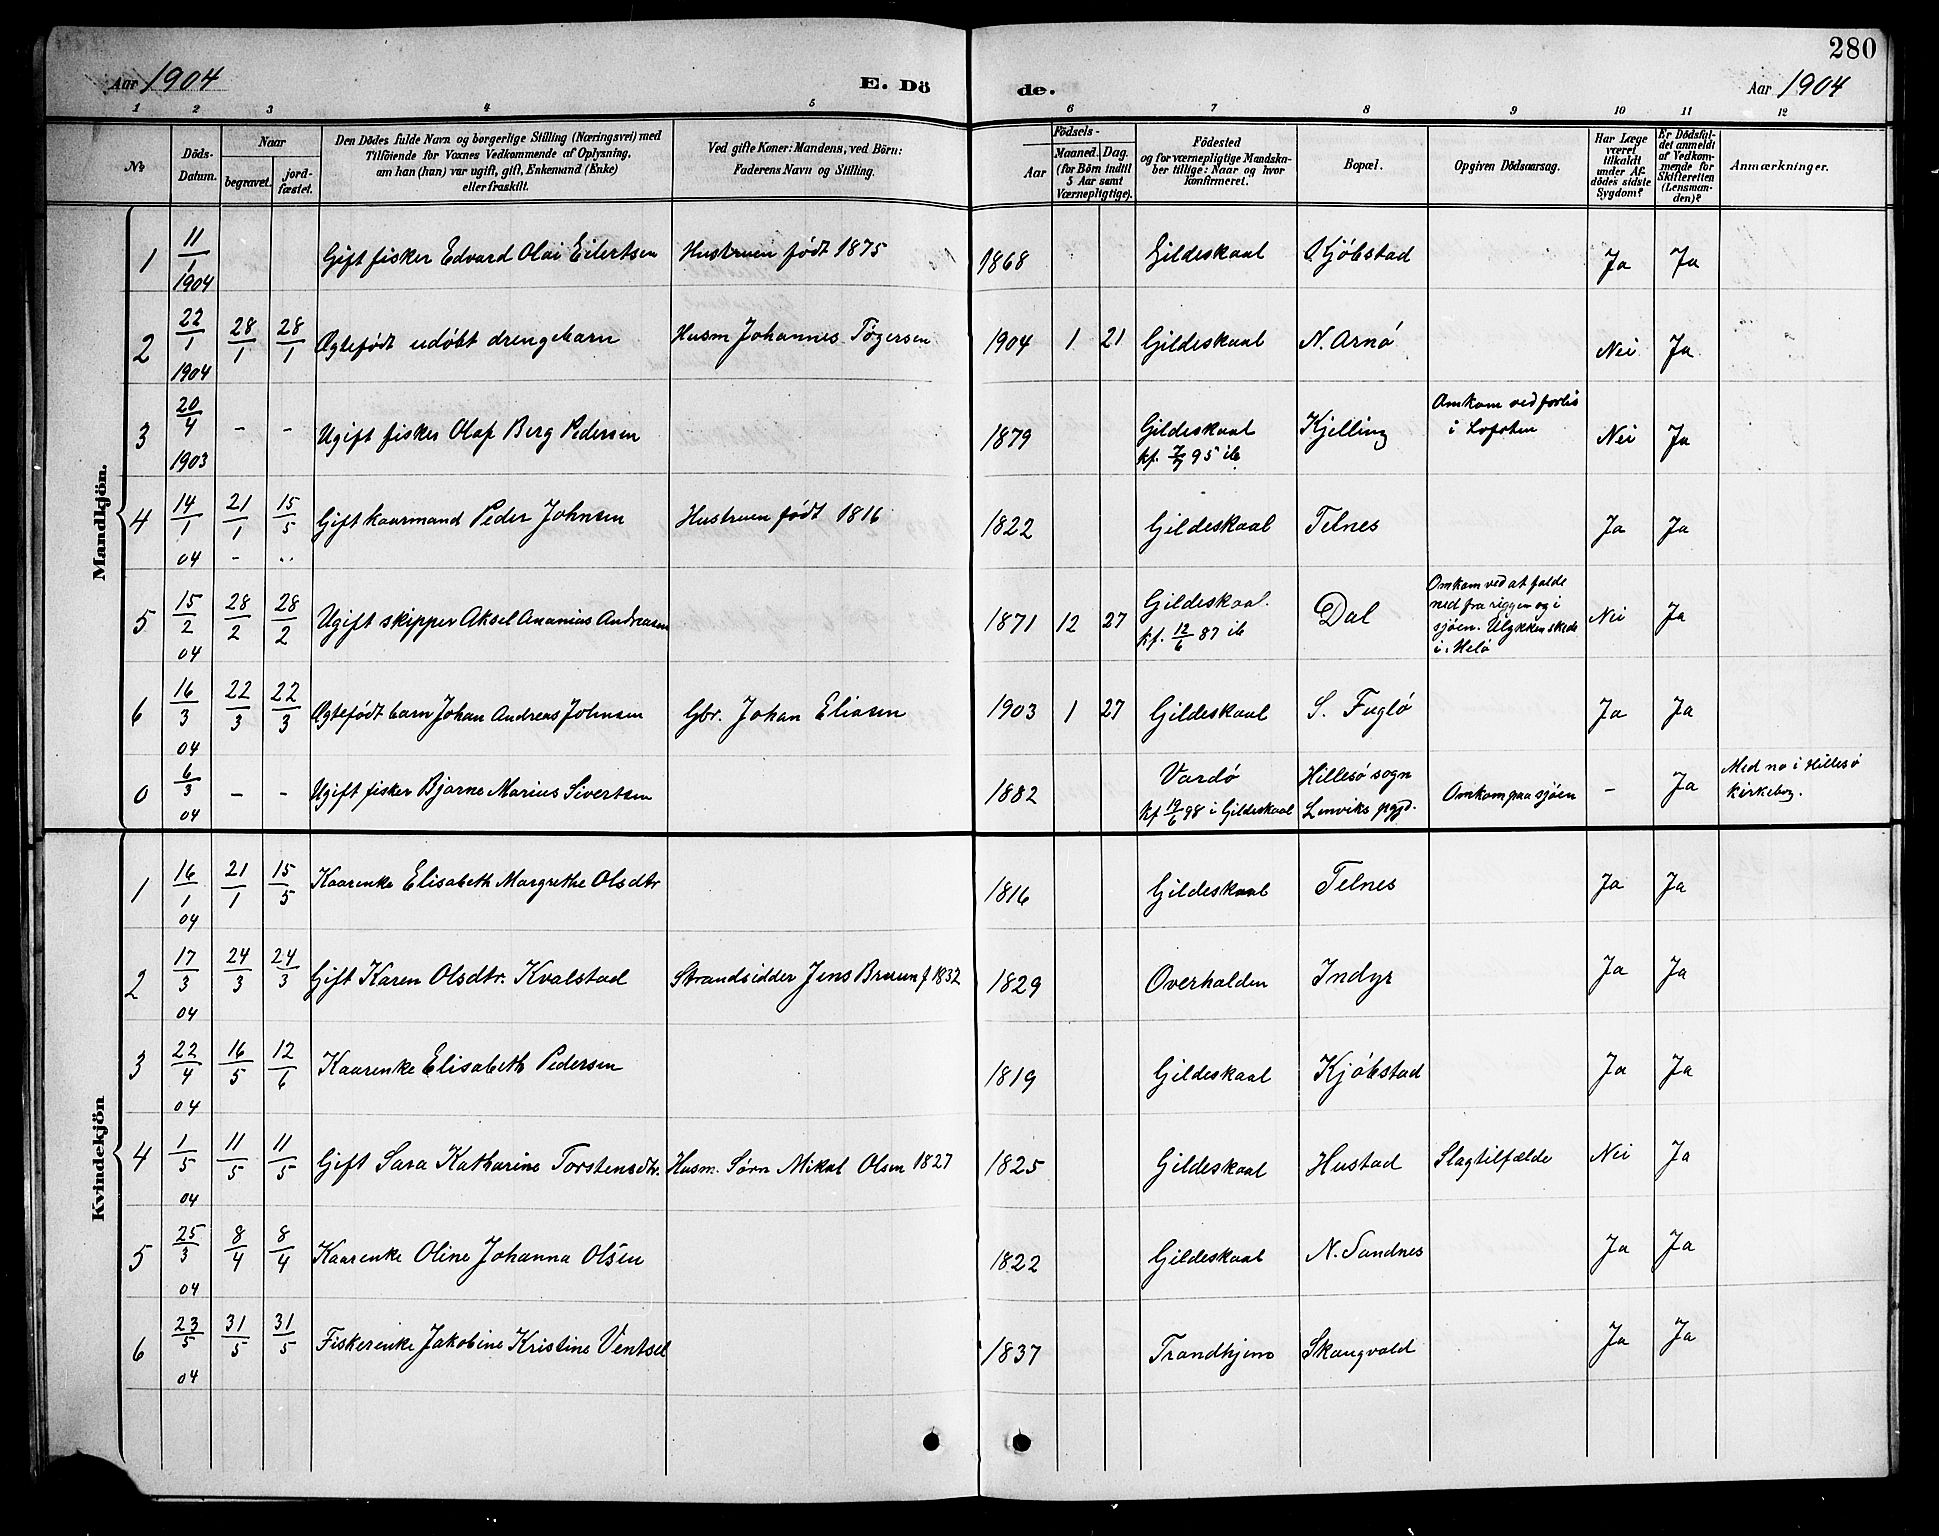 280
Aar 1904 E. Dö de. Aar 1904
1 2 3 4 5 6 7 8 9 10 11 12
№ Döds-Datum. Naar begravet. jord-fæstet. Den Dödes fulde Navn og borgerlige Stilling (Næringsvei) med Tilföiende for Voxnes Vedkommende af Oplysning, om han (hun) var ugift, gift, Enkemand (Enke) eller fraskilt. Ved gifte Koner: Mandens, ved Börn: Faderens Navn og Stilling. Födsels- Aar Maaned. Dag. (for Börn indtil 5 Aar samt Værnepligtige). Födested og for værnepligtige Mandskaber tillige: Naar og hvor konfirmeret. Bopæl. Opgiven Dödsaarsag. Har Læge været tilkaldt under Afdödes sidste Sygdom? Er Dödsfaldet anmeldt af Vedkommende for Skifteretten (Lensmanden)? Anmærkninger.
Mandkjön.
1 11/1 1904 Gift fisker Edvard Olai Eilertsen Hustruen født 1875 1868 Gildeskaal Kjöbstad Ja Ja
2 22/1 1904 28/1 28/1 Ægtefødt udøbt drengebarn Husm Johannes Tøgersen 1904 1 21 Gildeskaal N. Arnö Nei Ja
3 20/4 1903 - - Ugift fisker Olaf Berg Pedersen 1879 Gildeskaal kf. 95 ib Kjelling Omkom ved forlis i Lofoten Nei Ja
4 14/1 04 21/1 - 15/5 .. Gift kaarmand Peder Johnsen Hustruen født 1816 1822 Gildeskaal Telnes Ja Ja
5 15/2 04 28/2 28/2 Ugift skipper Aksel Ananias Andreasen 1871 12 27 Gildeskaal. kf. 12/6 87 ib Dal Omkom ved at falde ned fra riggen og i sjöen. Ulykken skede i Melö Nei Ja
6 16/3 04 22/3 22/3 Ægtefødt barn Johan Andreas Johnsen Gbr. Johan Eliasen 1903 1 27 Gildeskaal S. Fuglö Ja Ja
0 6/3 04 - - Ugift fisker Bjarne Marius Sivertsen 1882 Vardö kf 19/6 98 i Gildeskaal Hillesö sogn Lenviks pgjd. Omkom paa sjöen - Ja Med no i Hillesö kirkebog.
Kvindekjön
1 16/1 04 21/1 15/5 Kaarenke Elisabeth Margrethe Olsdtr 1816 Gildeskaal Telnes Ja Ja
2 17/3 04 24/3 24/3 Gift Karen Olsdtr. Kvalstad Strandsidder Jens Bruun f 1832 1829 Overhalden Indyr Ja Ja
3 22/4 04 16/5 12/6 Kaarenke Elisabeth Pedersen 1819 Gildeskaal Kjöbstad Ja Ja
4 1/5 04 11/5 11/5 Gift Sara Katharine Torstensdtr. Husm. Sørn Mikal Olsen 1827 1825 Gildeskaal Hustad Slagtilfælde Nei Ja
5 25/3 04 8/4 8/4 Kaarenke Oline Johanna Olsen 1822 Gildeskaal N. Sandnes Ja Ja
6 23/5 04 31/5 31/5 Fiskerenke Jakobine Kristine Ventsel 1837 Trondhjem Skaugvold Ja Ja